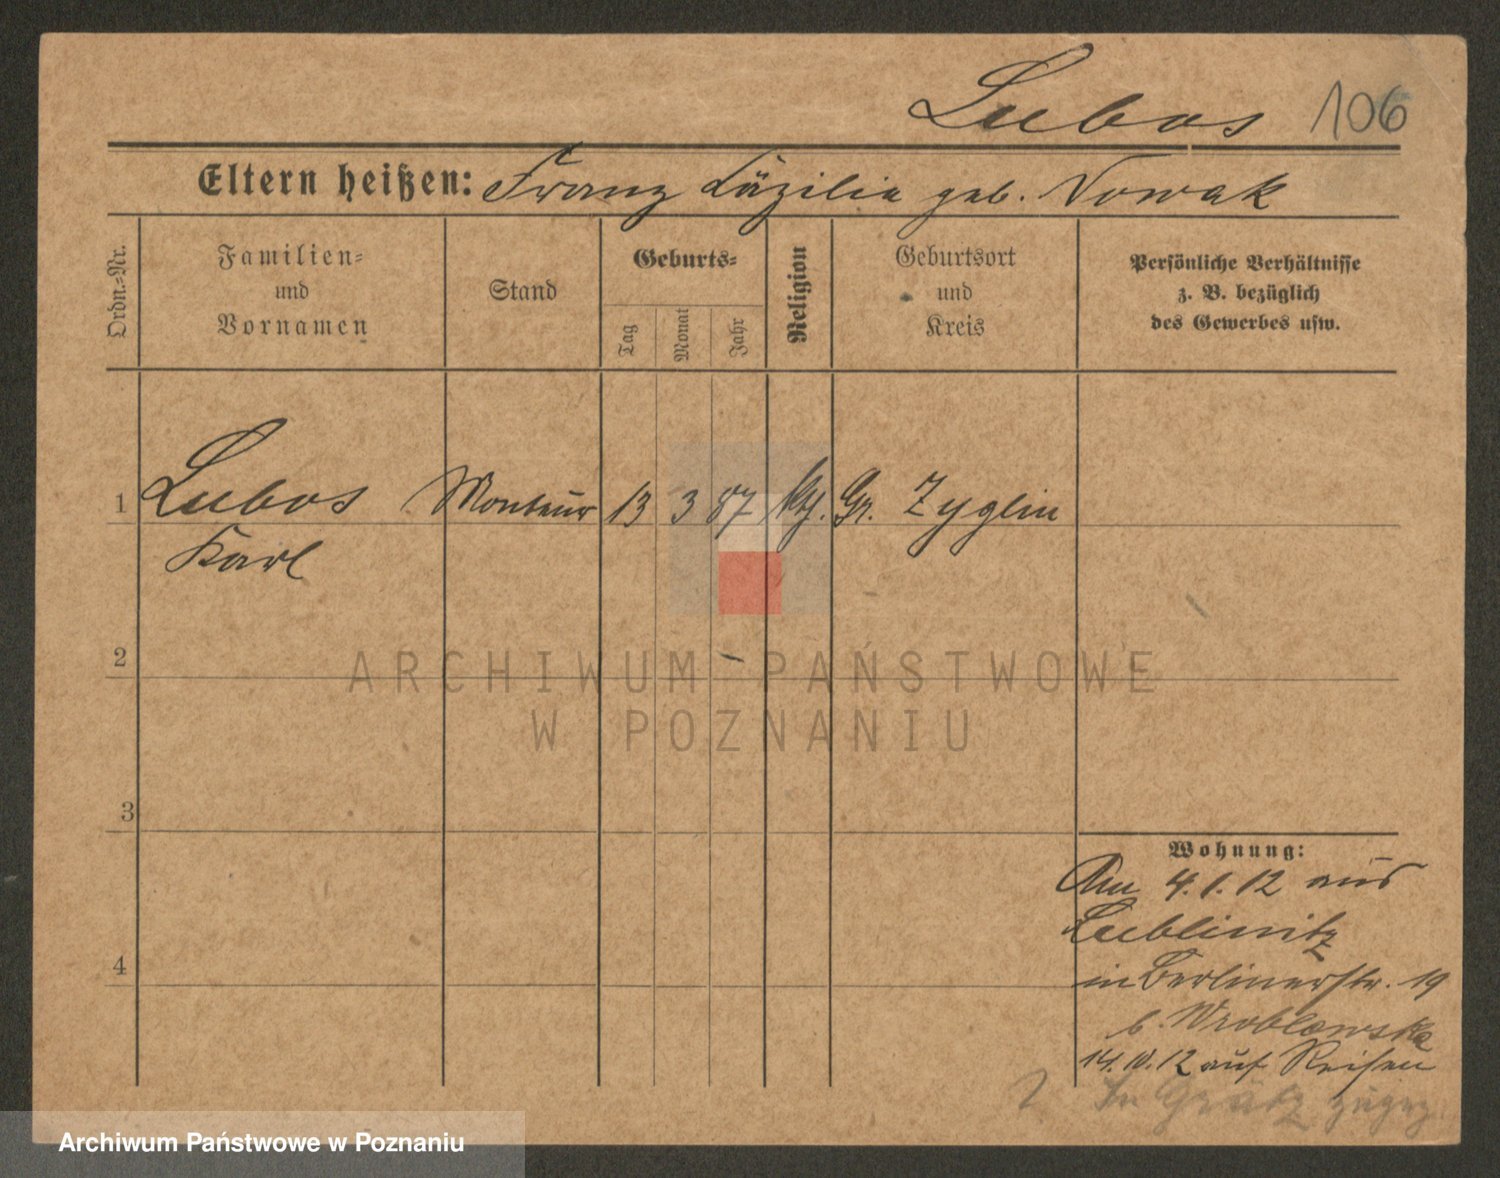 Lubos 106
Eltern heißen: Franz Cäzilia geb. Nowak
Ordn.-Nr.
Familien-
und
Vornamen
Stand
Geburts-
Tag
Monat
Jahr
Religion
Geburtsort
und
Kreis
Persönliche Verhältnisse
z. B. bezüglich
des Gewerbes usw.
1 Lubos Monteur 13 3 87 kth. Gr. Zyglin
Karl
2
3
4
Wohnung:
Am 4.1.12 aus
Lublinitz
in Berlinerstr. 19
b. Wroblewska
14.10.12 auf Reisen
In Grätz zugez.
ARCHIWUM PAŃSTWOWE
W POZNANIU
Archiwum Państwowe w Poznaniu